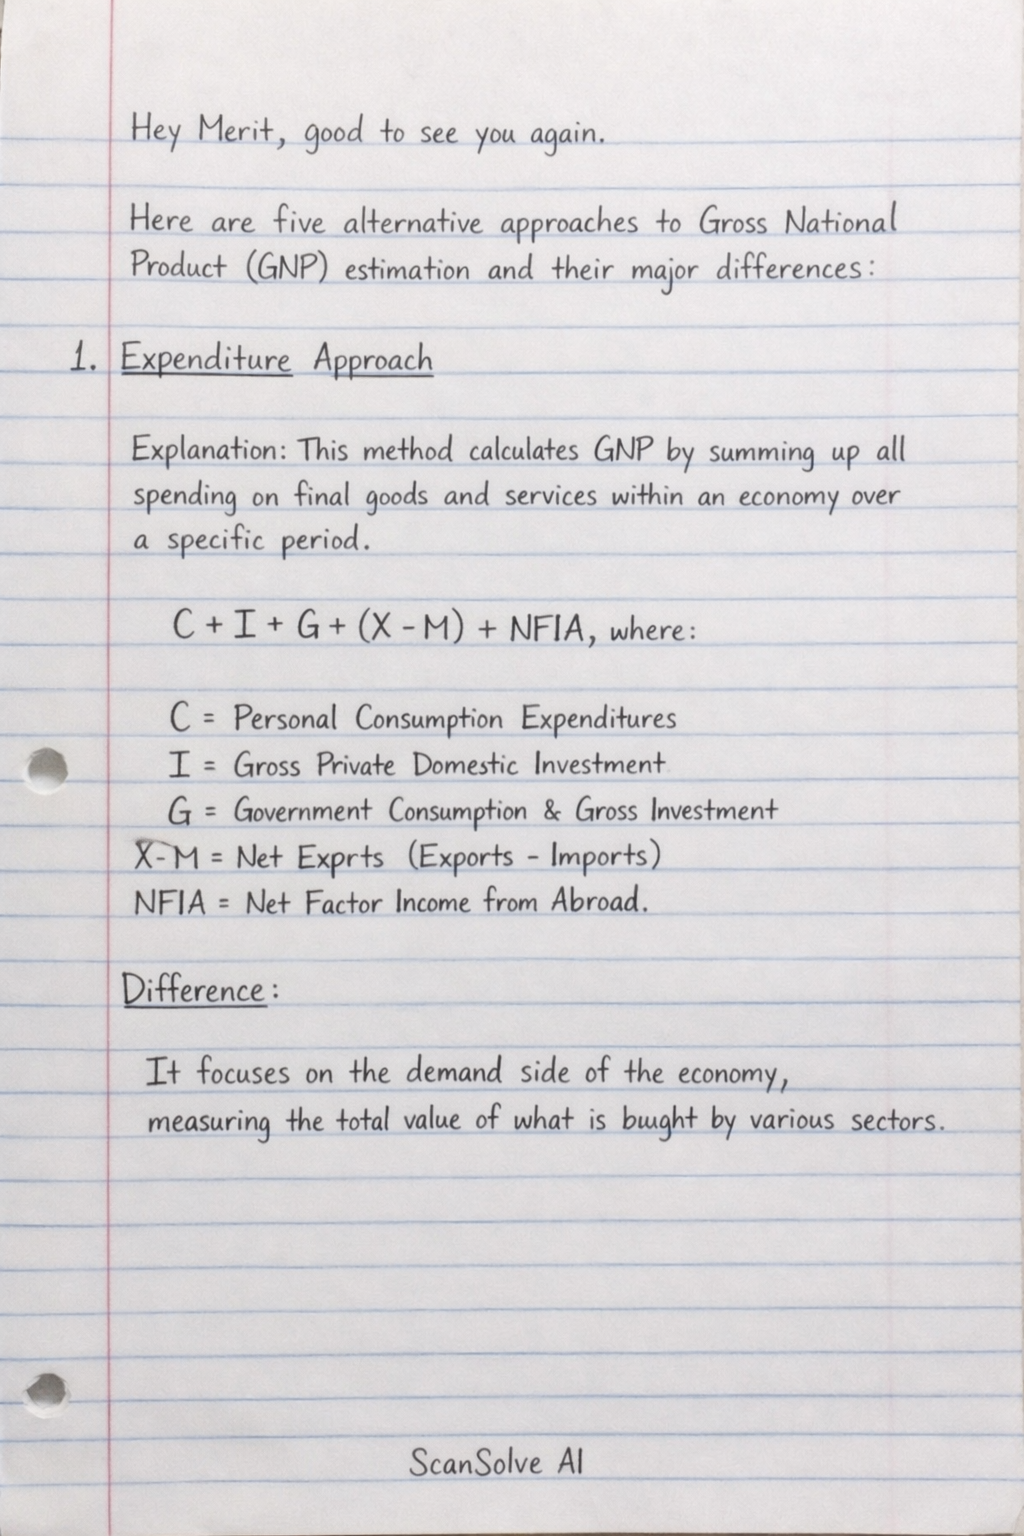 Hey Merit, good to see you again.
Here are five alternative approaches to Gross National
Product (GNP) estimation and their major differences:
1. Expenditure Approach
Explanation: This method calculates GNP by summing up all
spending on final goods and services within an economy over
a specific period.
C + I + G + (X - M) + NFIA, where:
C = Personal Consumption Expenditures
I = Gross Private Domestic Investment
G = Government Consumption & Gross Investment
X-M = Net Exprts (Exports - Imports)
NFIA = Net Factor Income from Abroad.
Difference:
It focuses on the demand side of the economy,
measuring the total value of what is bught by various sectors.
ScanSolve AI